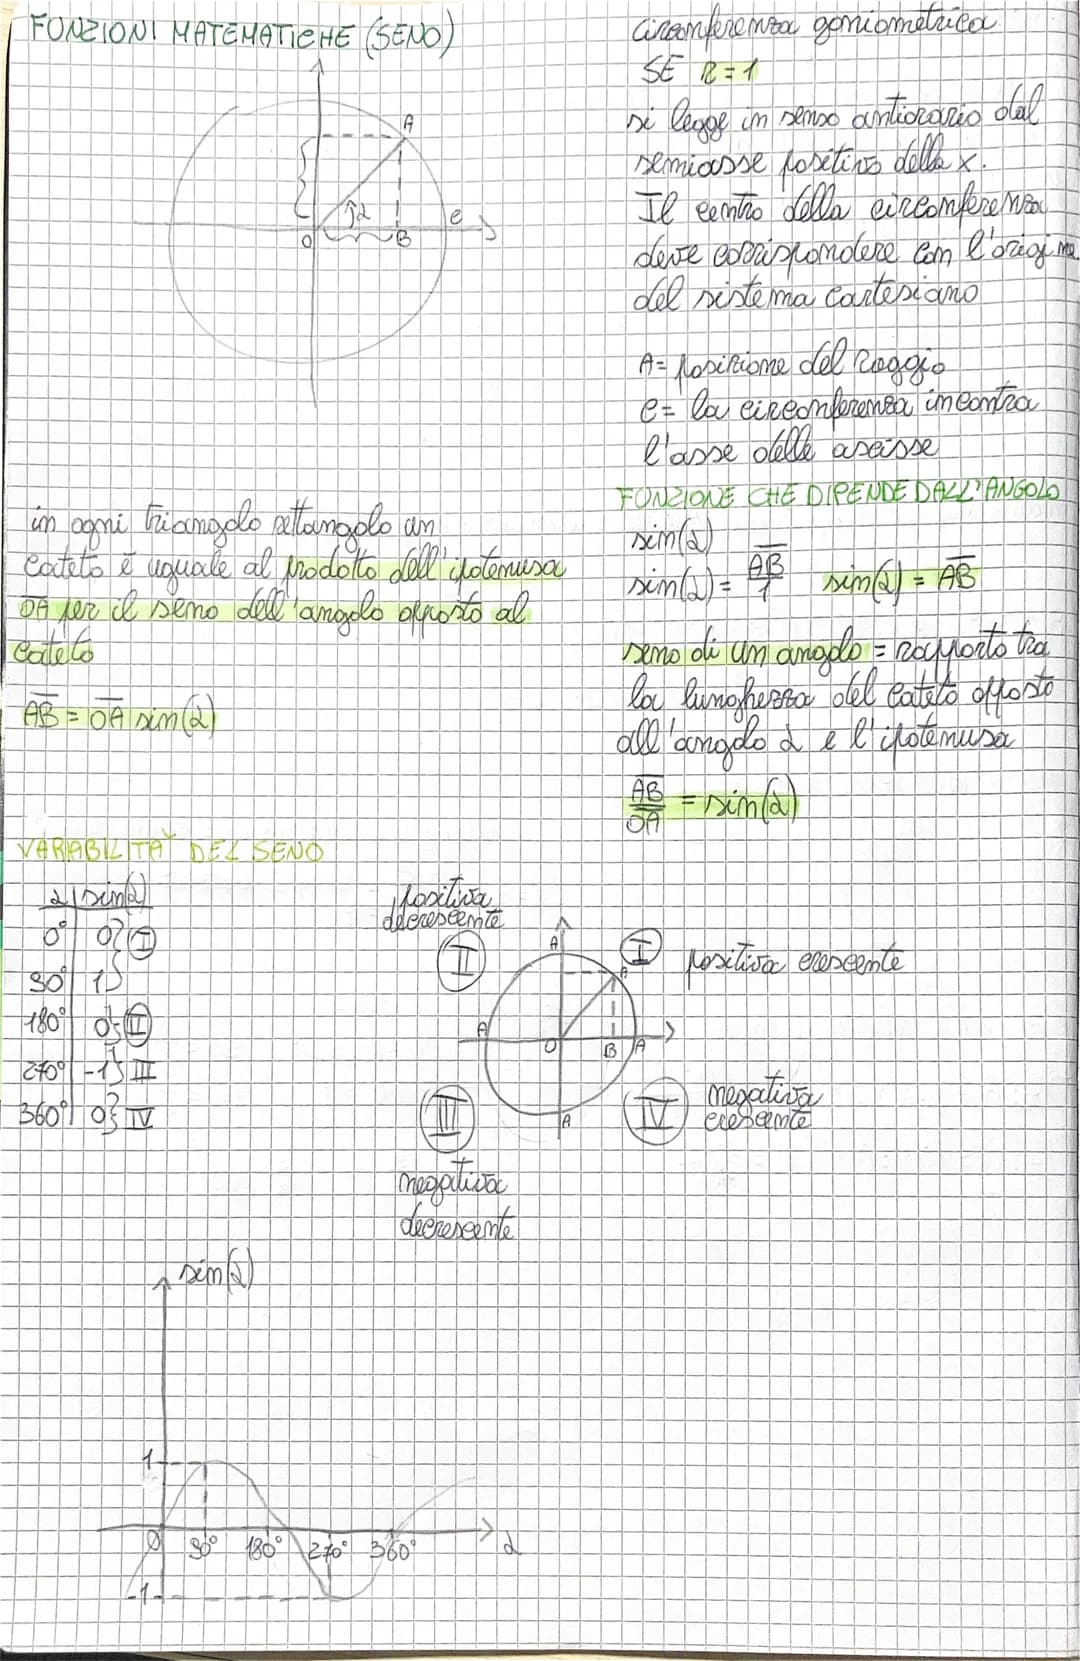 FUNZIONI MATEMATICHE (SENO)
A
α
e
O
B
circonferenza goniometrica
SE R=1
si legge in senso antiorario dal
semiasse positivo della x.
Il centro della circonferenza
deve corrispondere con l'origine
del sistema cartesiano
A= posizione del raggio
e= la circonferenza incontra
l'asse delle ascisse
FUNZIONE CHE DIPENDE DALL'ANGOLO
sin(α)
sin(α) = AB/1 sin(α) = AB
seno di un angolo = rapporto tra
la lunghezza del cateto opposto
all'angolo α e l'ipotenusa
AB/OA = sin(α)
in ogni triangolo rettangolo un
cateto è uguale al prodotto dell'ipotenusa
OA per il seno dell'angolo opposto al
cateto
AB = OA sin(α)
VARIABILITÀ DEL SENO
α | sin(α)
0° | 0} I
90° | 1}
180° | 0} II
270° | -1} III
360° | 0} IV
positiva
decrescente
II
A
I
positiva crescente
A
A
O
B
A
III
A
IV
negativa
crescente
negativa
decrescente
sin(α)
1
0
90° 180° 270° 360°
α
-1